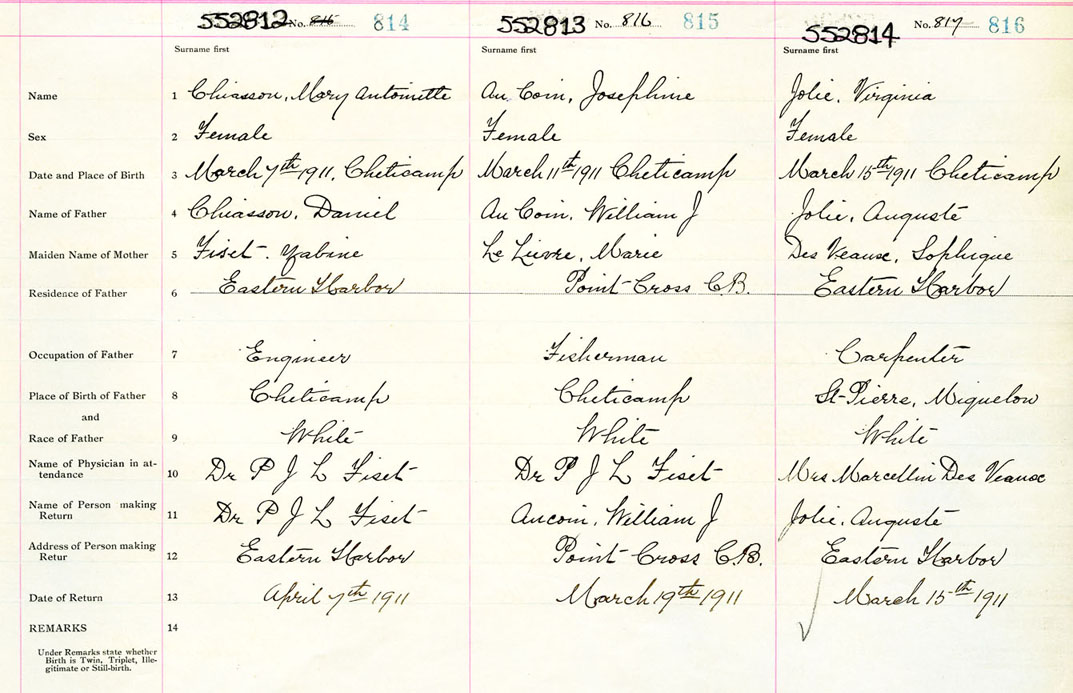 552812 No. 815 814 552813 No. 816 815 552814 No. 817 816
Surname first Surname first Surname first
Name 1 Chiasson, Mary Antoinette Au Coin, Josephine Jolie, Virginia
Sex 2 Female Female Female
Date and Place of Birth 3 March 7th 1911, Cheticamp March 11th 1911 Cheticamp March 15th 1911 Cheticamp
Name of Father 4 Chiasson, Daniel Au Coin, William J Jolie, Auguste
Maiden Name of Mother 5 Fiset. Zabine Le Lievre, Marie Des Veause, Sophique
Residence of Father 6 Eastern Harbor Point Cross C.B. Eastern Harbor
Occupation of Father 7 Engineer Fisherman Carpenter
Place of Birth of Father 8 Cheticamp Cheticamp St-Pierre, Miquelon
and
Race of Father 9 White White White
Name of Physician in at-
tendance 10 Dr P J L Fiset Dr P J L Fiset Mrs Marcellin Des Veause
Name of Person making
Return 11 Dr P J L Fiset Aucoin, William J Jolie, Auguste
Address of Person making
Retur 12 Eastern Harbor Point Cross C.B. Eastern Harbor
Date of Return 13 April 7th 1911 March 19th 1911 March 15th 1911
REMARKS 14
Under Remarks state whether
Birth is Twin, Triplet, Ille-
gitimate or Still-birth.